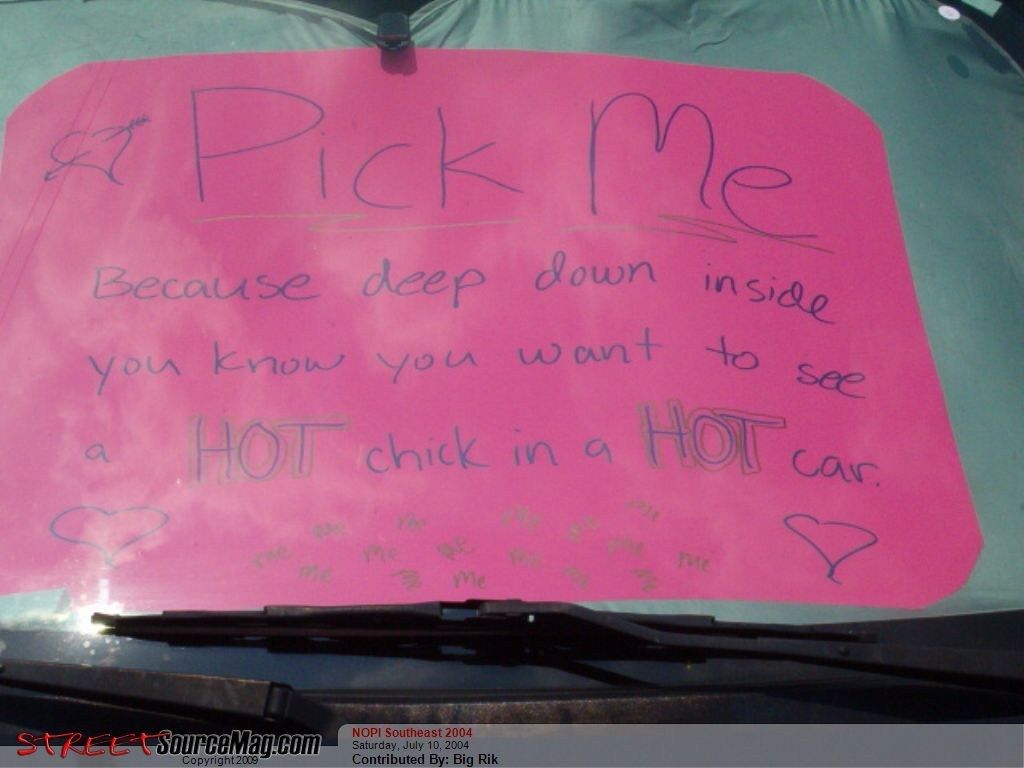 Pick Me
Because deep down inside
you know you want to see
a HOT chick in a HOT car.
me me me me me me
me me me me me
me me me me
STREETSourceMag.com
Copyright 2009
NOPI Southeast 2004
Saturday, July 10, 2004
Contributed By: Big Rik